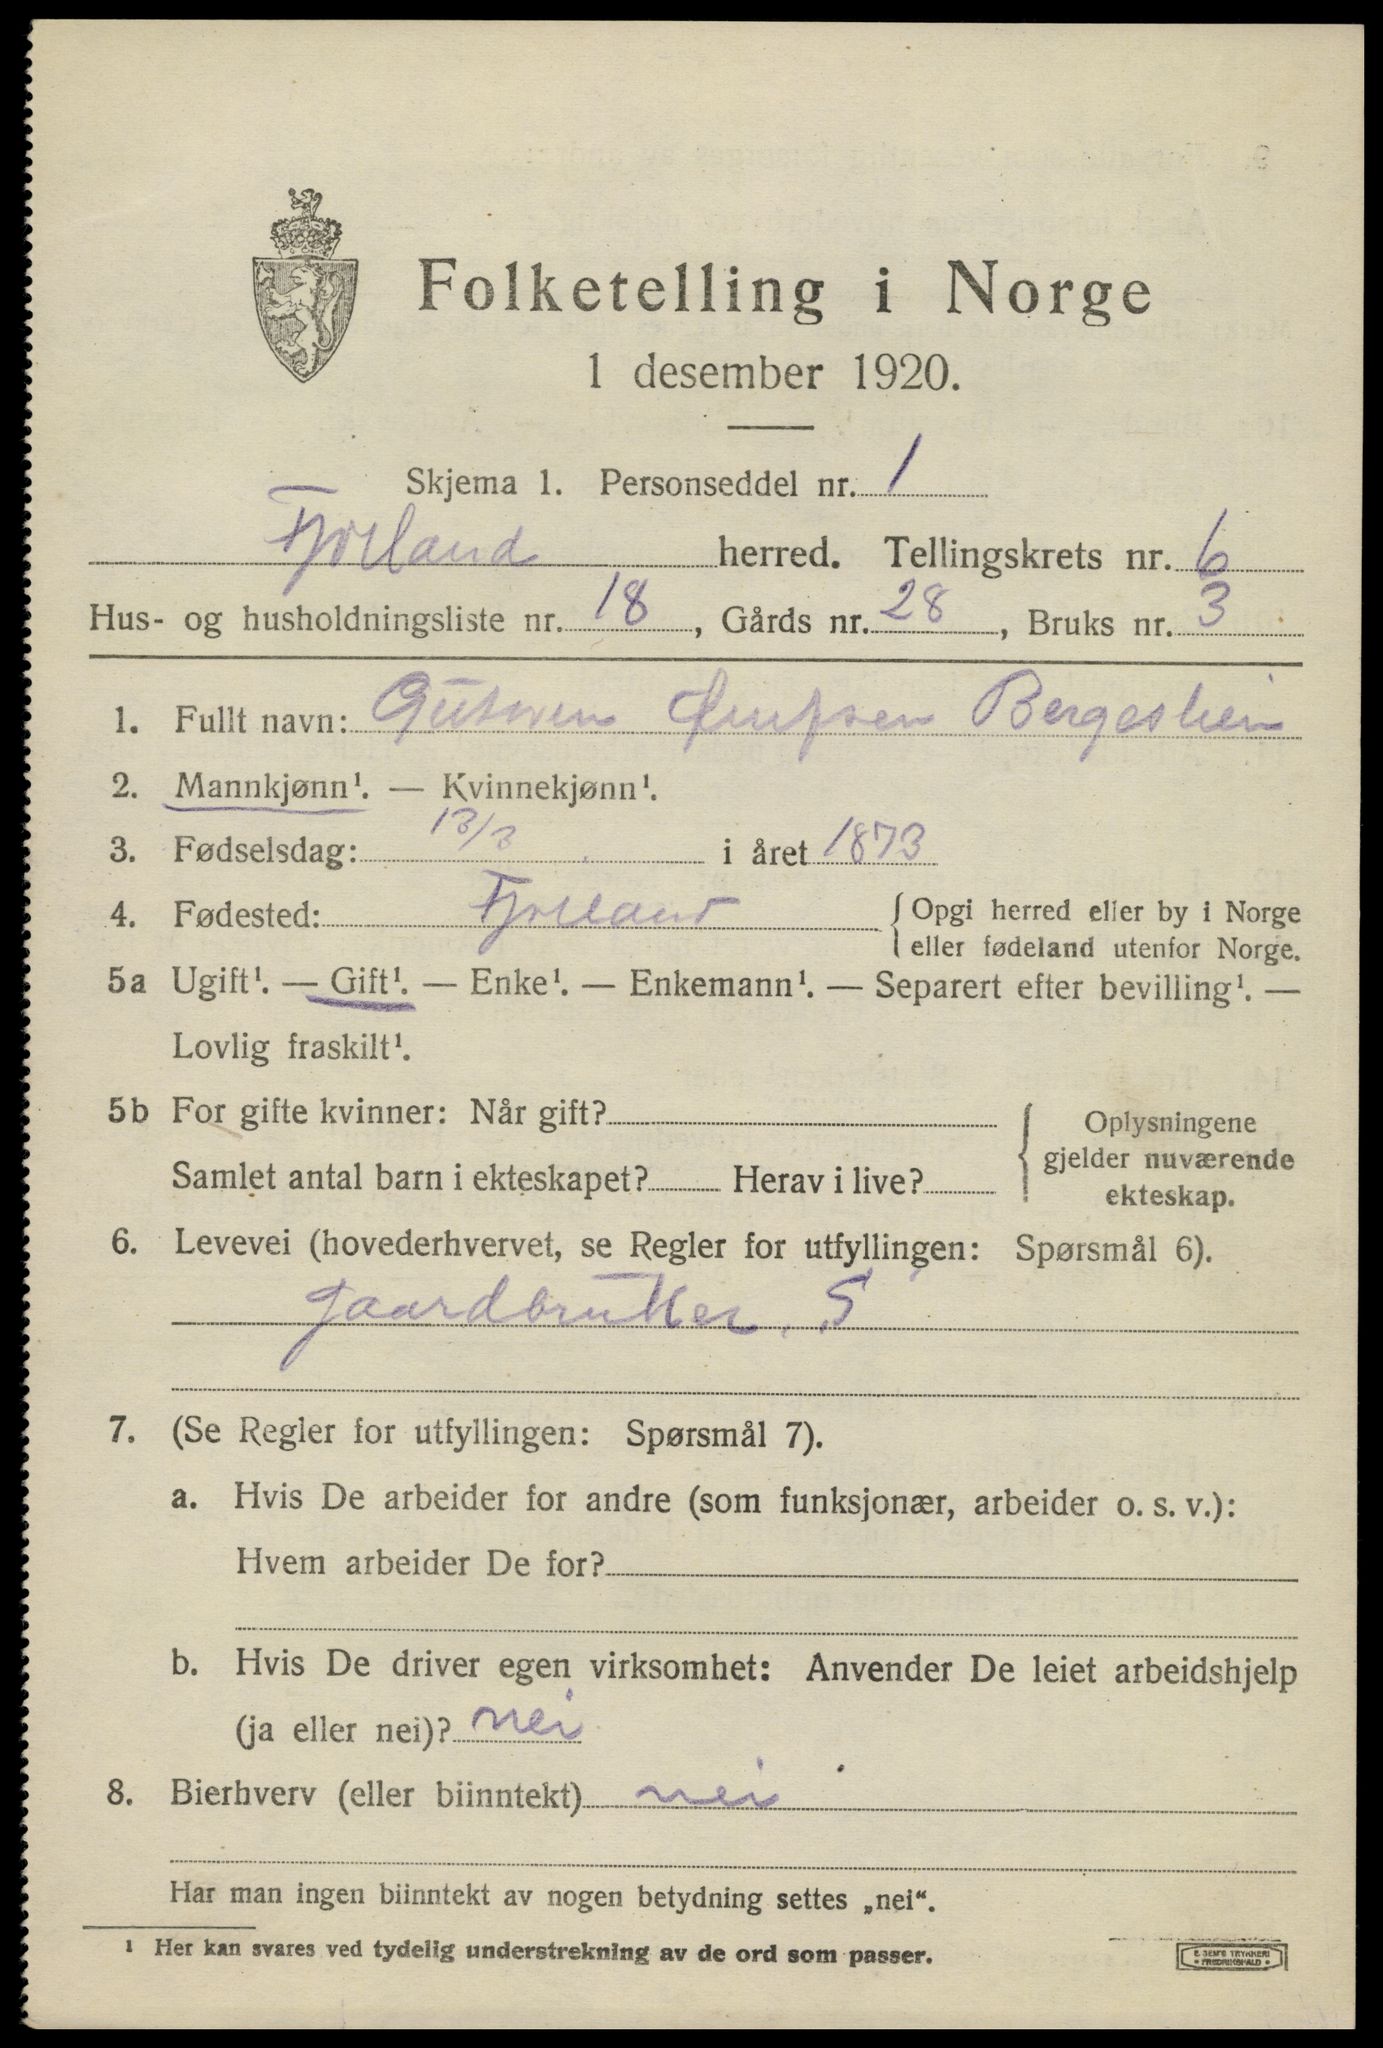 Folketelling i Norge
1 desember 1920.
Skjema 1. Personseddel nr. 1
Fjotland herred. Tellingskrets nr. 6
Hus- og husholdningsliste nr. 18, Gårds nr. 28, Bruks nr. 3
1. Fullt navn:
2. Mannkjønn¹. — Kvinnekjønn¹.
3. Fødselsdag: 13/3 i året 1873
4. Fødested: Fjotland { Opgi herred eller by i Norge
eller fødeland utenfor Norge.
5a Ugift¹. — Gift¹. — Enke¹. — Enkemann¹. — Separert efter bevilling¹. —
Lovlig fraskilt¹.
5b For gifte kvinner: Når gift? { Oplysningene
gjelder nuværende
Samlet antal barn i ekteskapet? Herav i live?
ekteskap.
6. Levevei (hovederhvervet, se Regler for utfyllingen: Spørsmål 6).
Gaardbruker. S
7. (Se Regler for utfyllingen: Spørsmål 7).
a. Hvis De arbeider for andre (som funksjonær, arbeider o. s. v.):
Hvem arbeider De for?
b. Hvis De driver egen virksomhet: Anvender De leiet arbeidshjelp
(ja eller nei)? nei
8. Bierhverv (eller biinntekt) nei
Har man ingen biinntekt av nogen betydning settes „nei“.
¹ Her kan svares ved tydelig understrekning av de ord som passer.
E. SEM'S TRYKKERI
• FREDRIKSHALD •